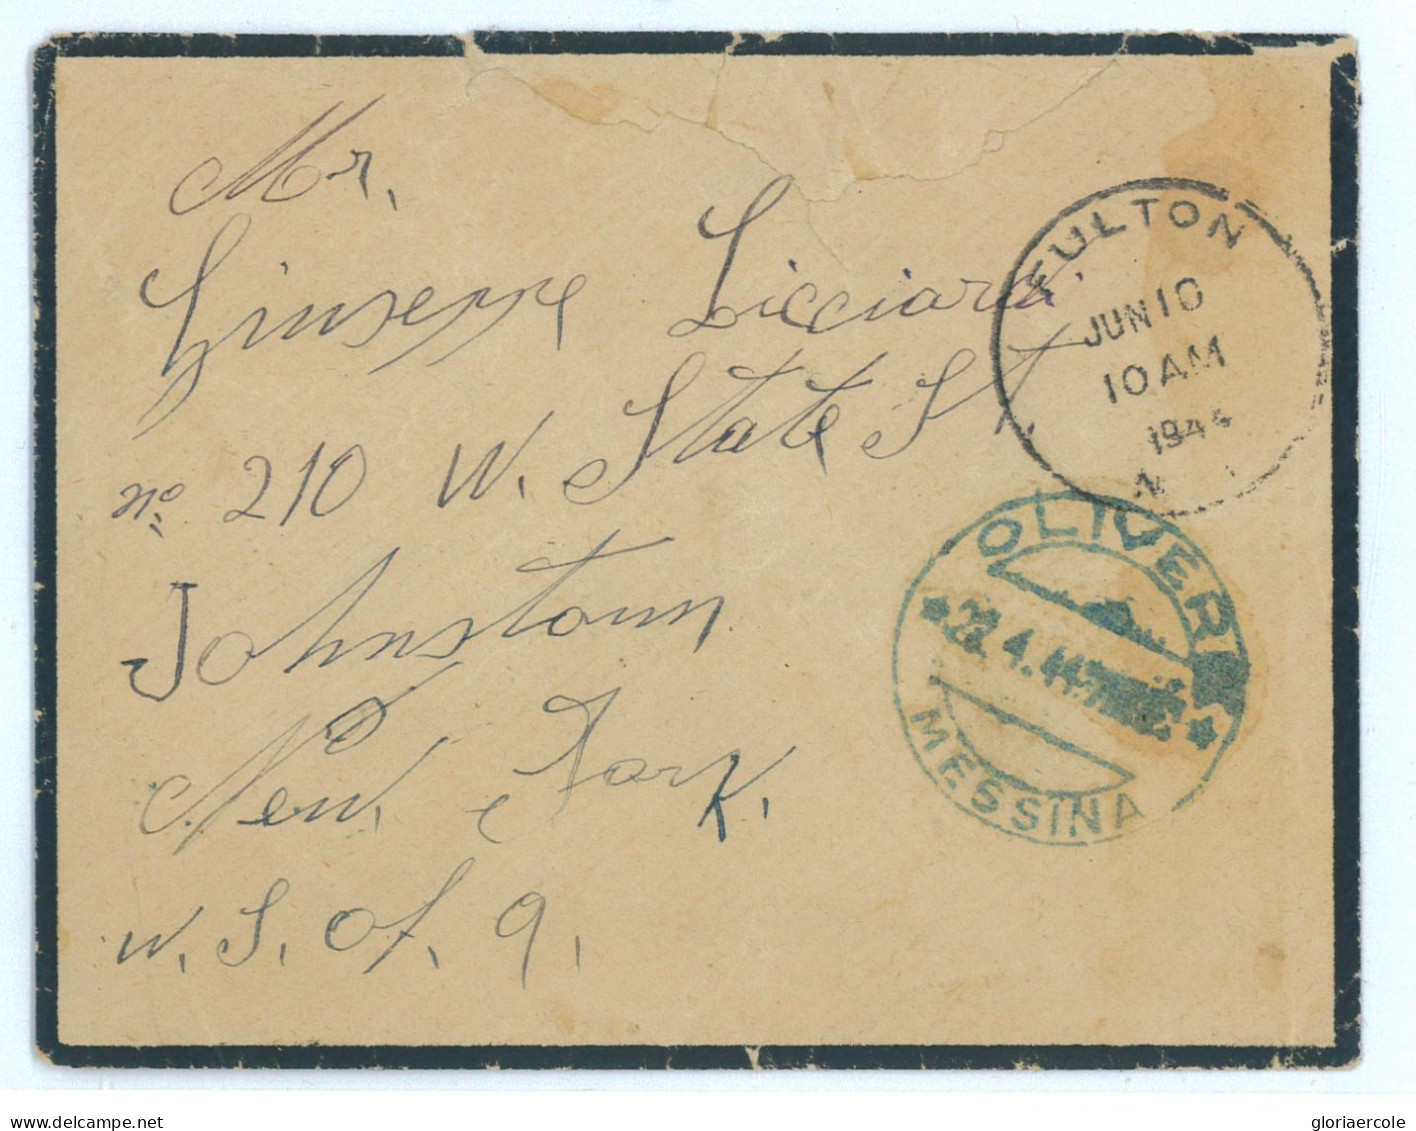 Mr.
Giuseppe Licciardi
nº 210 W. State St.
Johnstown
New York.
U. S. of. a.
FULTON
JUN 10
10 AM
1944
N
OLIVERI
22.4.44
MESSINA
delcampe.net
gloriaercole